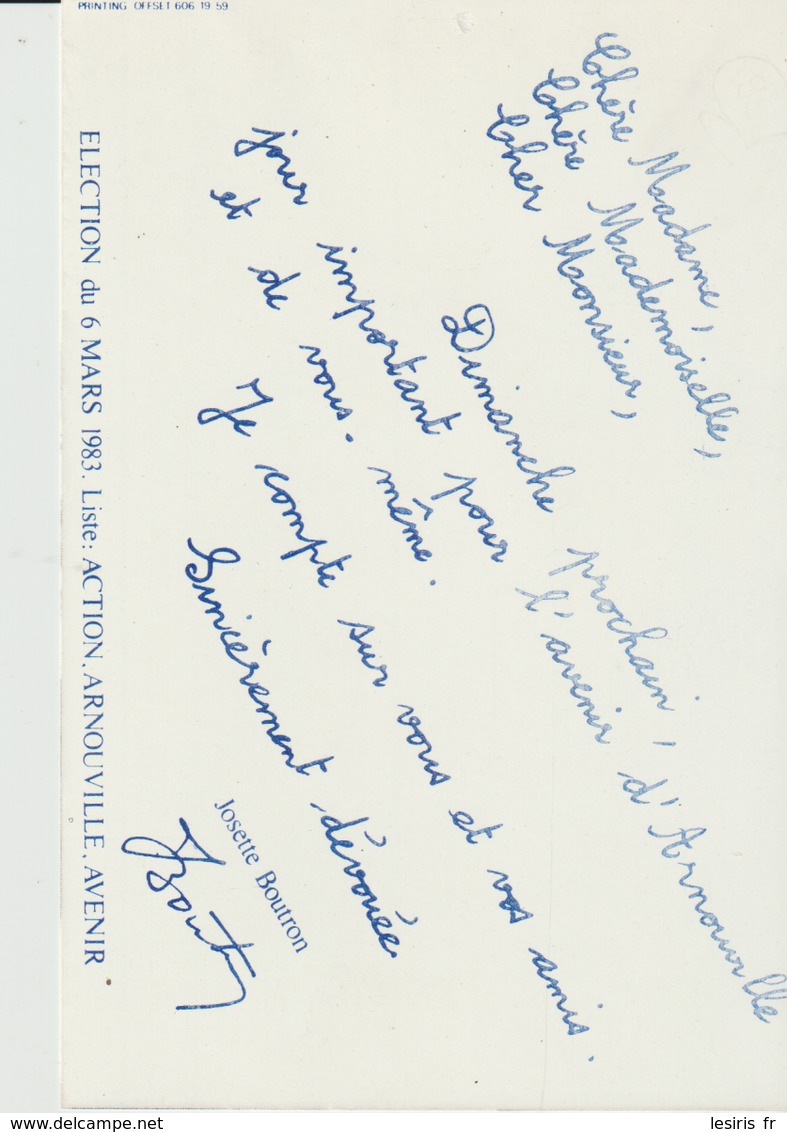 PRINTING OFFSET 606 19 59
Chère Madame,
Chère Mademoiselle,
Cher Monsieur,
Dimanche prochain,
jour important pour l'avenir d'Arnouville
et de vous-même.
Je compte sur vous et vos amis.
Sincèrement dévouée
Josette Boutron
JBout
ELECTION du 6 MARS 1983. Liste: ACTION, ARNOUVILLE, AVENIR
www.delcampe.net
lesiris fr